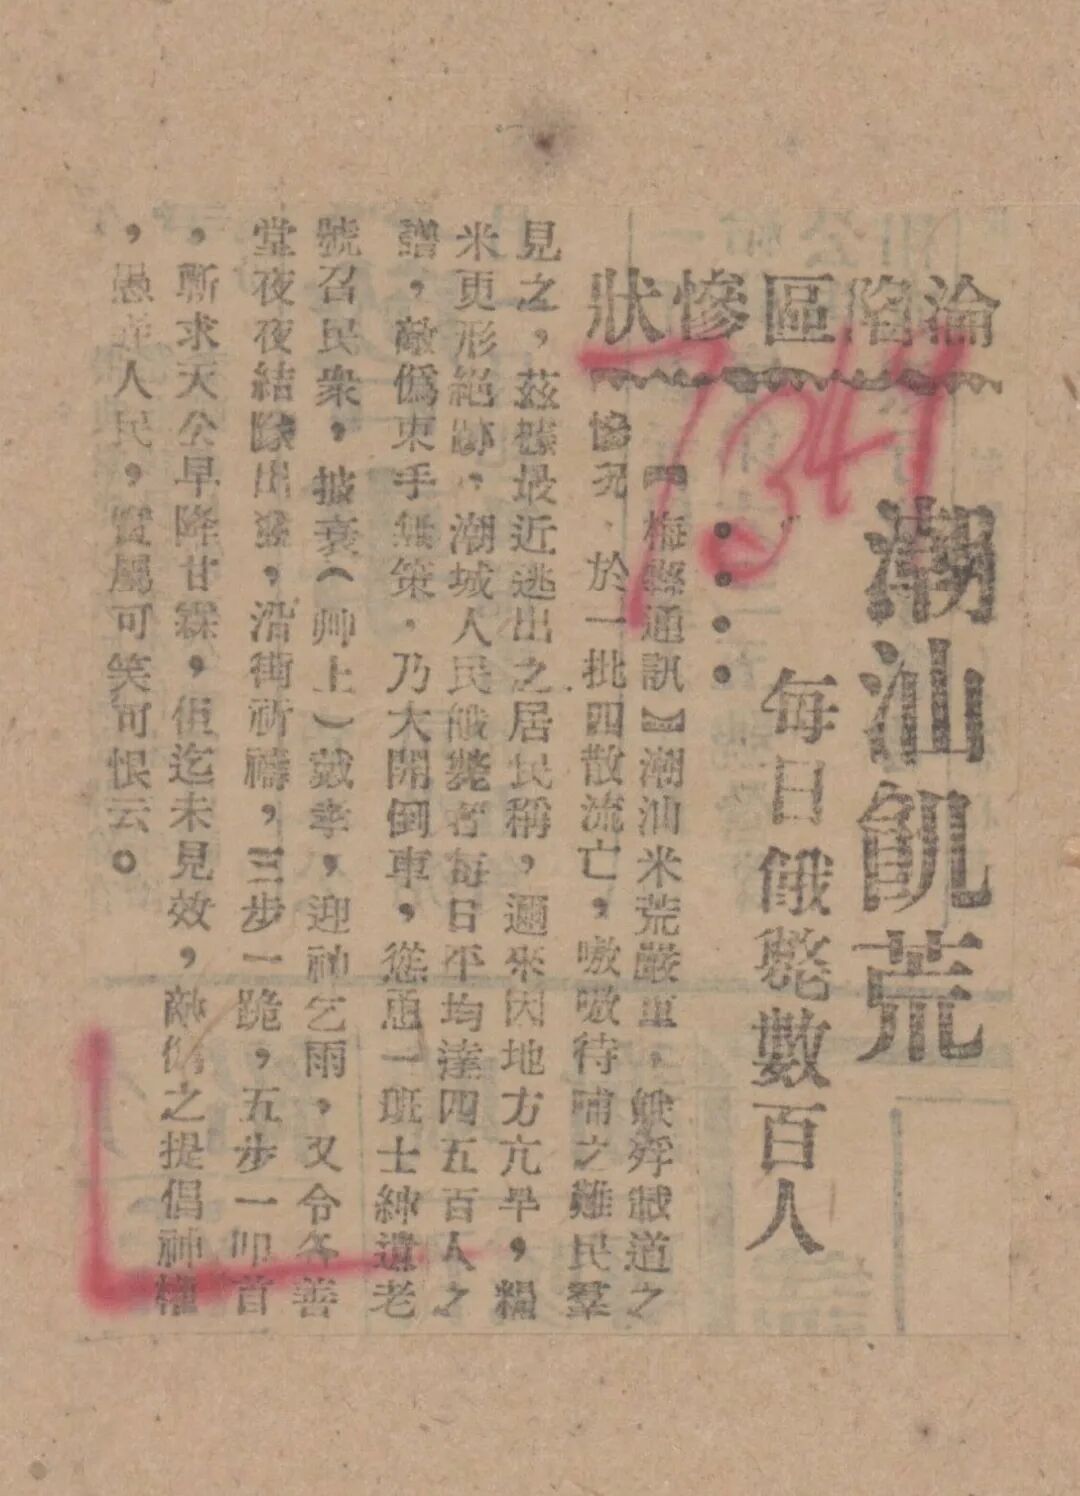 淪陷區慘狀
潮汕飢荒
每日餓斃數百人
【梅縣通訊】潮汕米荒嚴重,餓殍載道之
慘況,於一批四散流亡,嗷嗷待哺之難民羣
見之,茲據最近逃出之居民稱,邇來因地方亢旱,糧
米更形絕跡,潮城人民餓斃者每日平均達四五百人之
譜,敵僞束手無策,乃大開倒車,慫恿一班士紳遺老
號召民衆,披袞(帅上)戴孝,迎神乞雨,又令各善
堂夜夜結隊出巡,沿街祈禱,三步一跪,五步一叩首
,斬求天公早降甘霖,但迄未見效,敵僞之提倡神權
,愚弄人民,實屬可笑可恨云。
7344